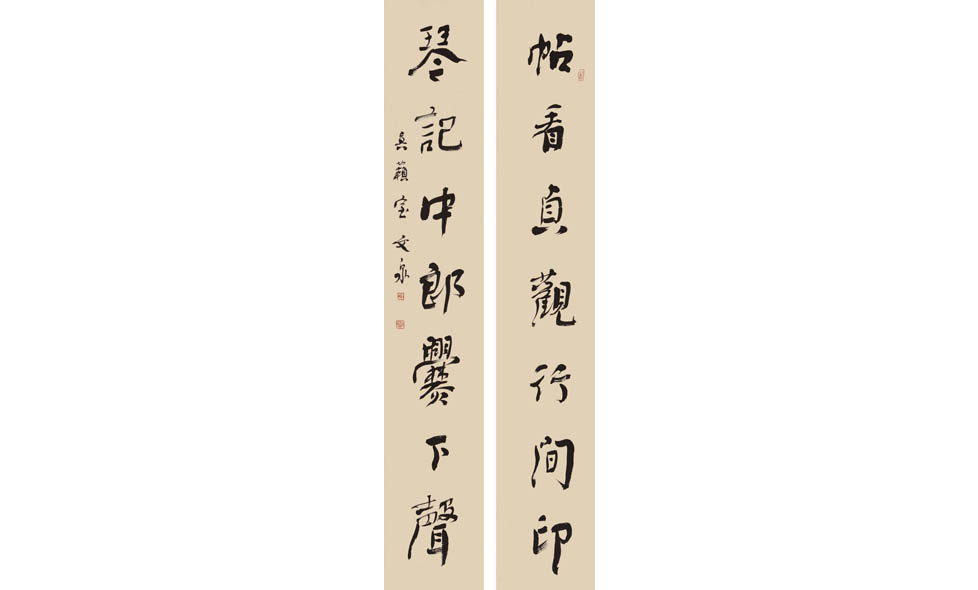 帖看貞觀行間印
琴記中郎爨下聲
真籟室文泉